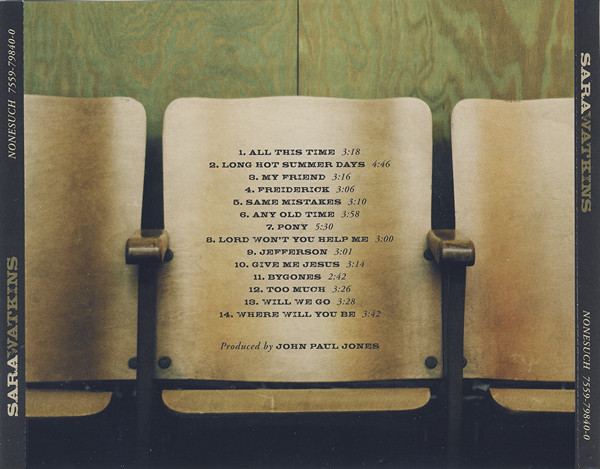 NONESUCH 7559-79840-0
SARAWATKINS
1. ALL THIS TIME 3:18
2. LONG HOT SUMMER DAYS 4:46
3. MY FRIEND 3:16
4. FREIDERICK 3:06
5. SAME MISTAKES 3:10
6. ANY OLD TIME 3:58
7. PONY 5:30
8. LORD WON'T YOU HELP ME 3:00
9. JEFFERSON 3:01
10. GIVE ME JESUS 3:14
11. BYGONES 2:42
12. TOO MUCH 3:26
13. WILL WE GO 3:28
14. WHERE WILL YOU BE 3:42
Produced by JOHN PAUL JONES
SARAWATKINS
NONESUCH 7559-79840-0